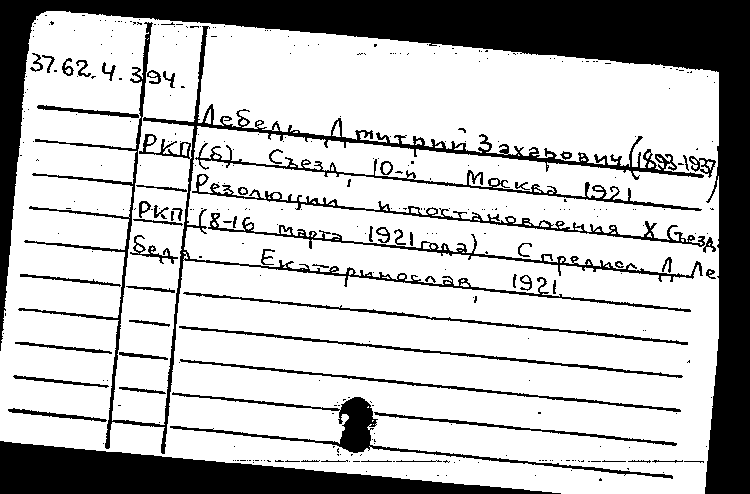 37.62.4.394.
Лебедь, Дмитрий Захарович (1893-1937)
РКП(б). Съезд, 10-й. Москва, 1921
Резолюции и постановления X Съезда
РКП (8-16 марта 1921 года). С предисл. Д. Ле-
бедя. Екатеринослав, 1921.